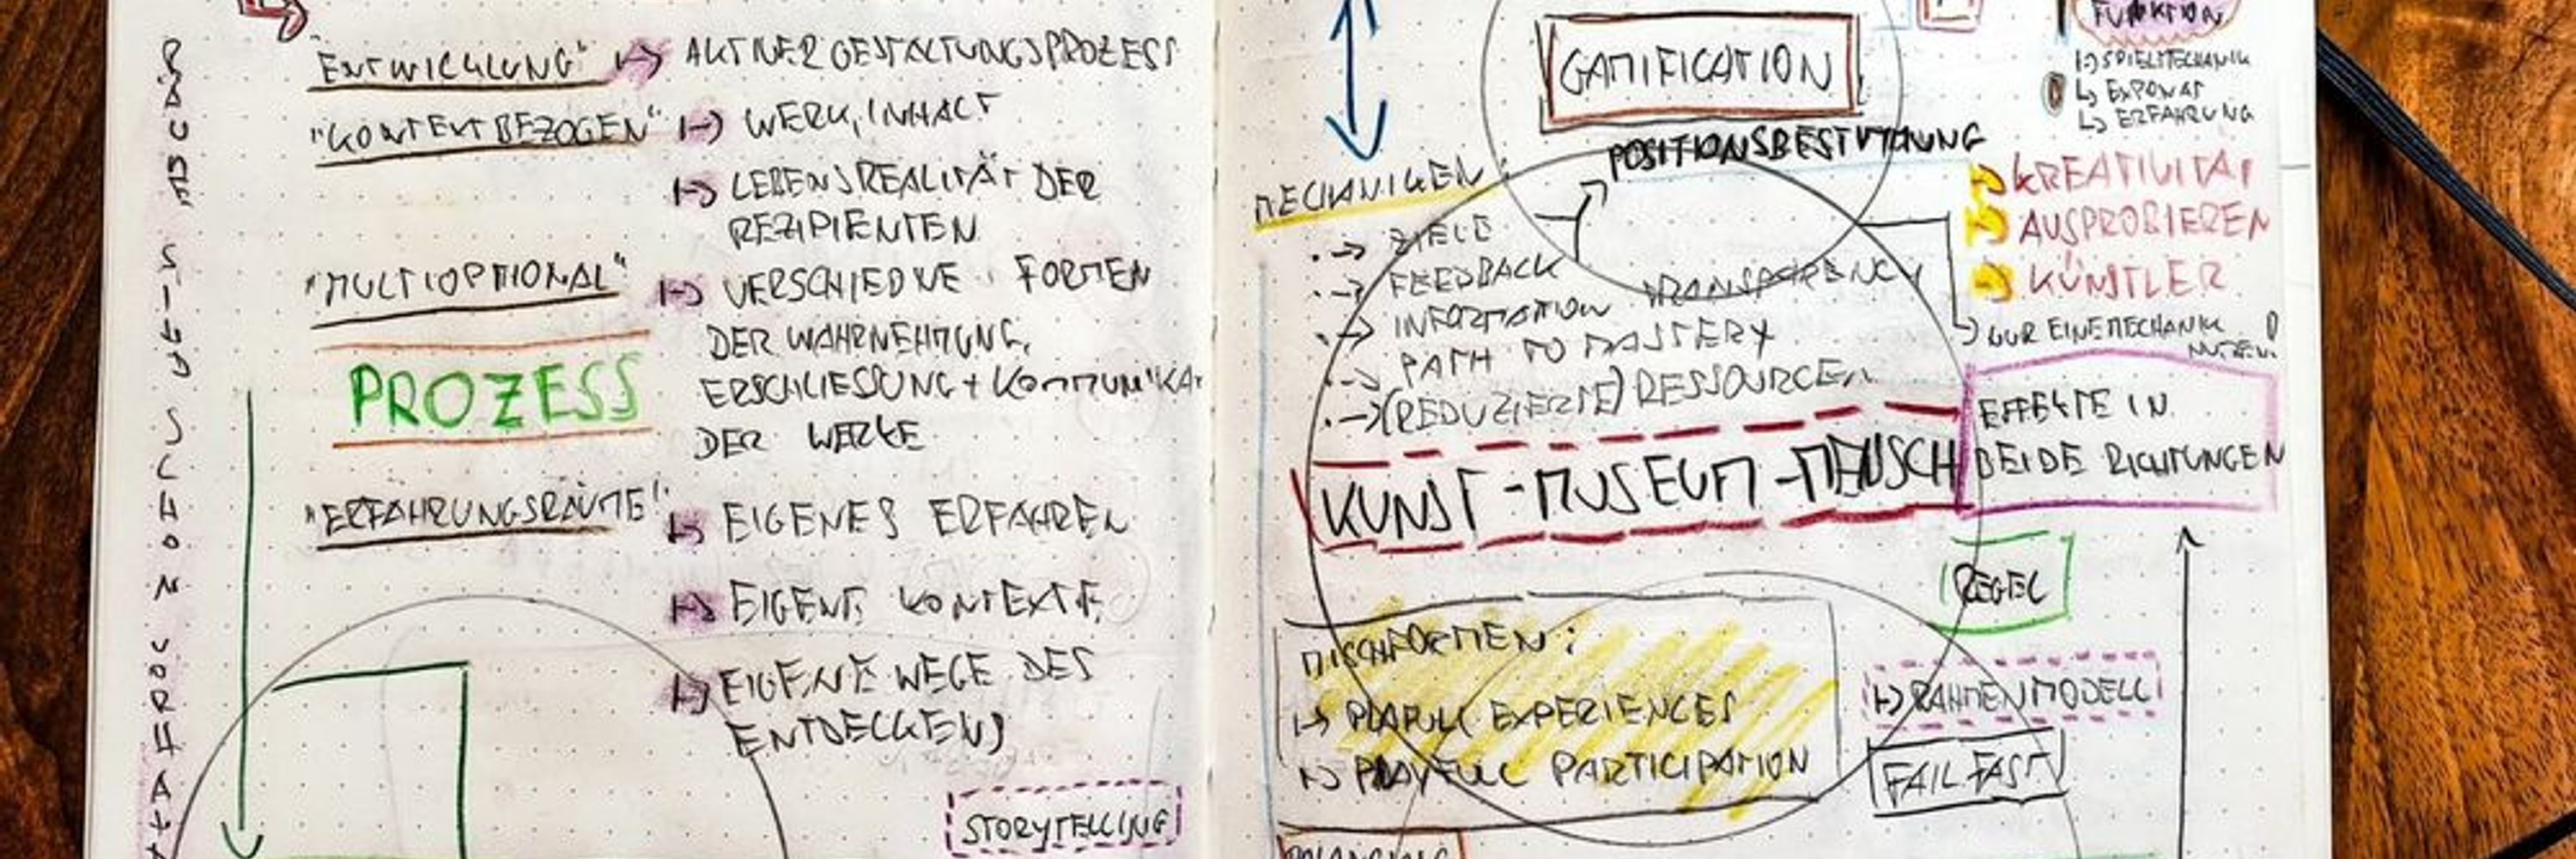 "ENTWICKLUNG" AKTIVER GESTALTUNGSPROZESS
"KONTEXTBEZOGEN" WERK, INHALT
LEBENSREALITÄT DER
REZIPIENTEN
"MULTIOPTIONAL" VERSCHIEDNE FORMEN
DER WAHRNEHMUNG,
ERSCHLIESSUNG + KOMMUNIKA
DER WERKE
PROZESS
"ERFAHRUNGSRÄUME" EIGENES ERFAHREN
EIGENE KONTEXTE
EIGENE WEGE DES
ENTDECKENS
STORYTELLING
SIND SCHON VORHA
GAMIFICATION
POSITIONSBESTIMMUNG
FUNKTION
SPIELMECHANIK
EXPONAT
ERFAHRUNG
MECHANIKEN:
ZIELE
FEEDBACK
INFORMATION TRANSPARENCY
PATH TO MASTERY
(REDUZIERTE) RESSOURCEN
KREATIVITÄT
AUSPROBIEREN
KÜNSTLER
NUR EINE MECHANIK
NUTZEN!
KUNST - MUSEUM - MENSCH
EFFEKTE IN
BEIDE RICHTUNGEN
REGEL
MISCHFORMEN:
PLAFULL EXPERIENCES
PLAYFULL PARTICIPATION
RAHMENMODELL
FAIL FAST